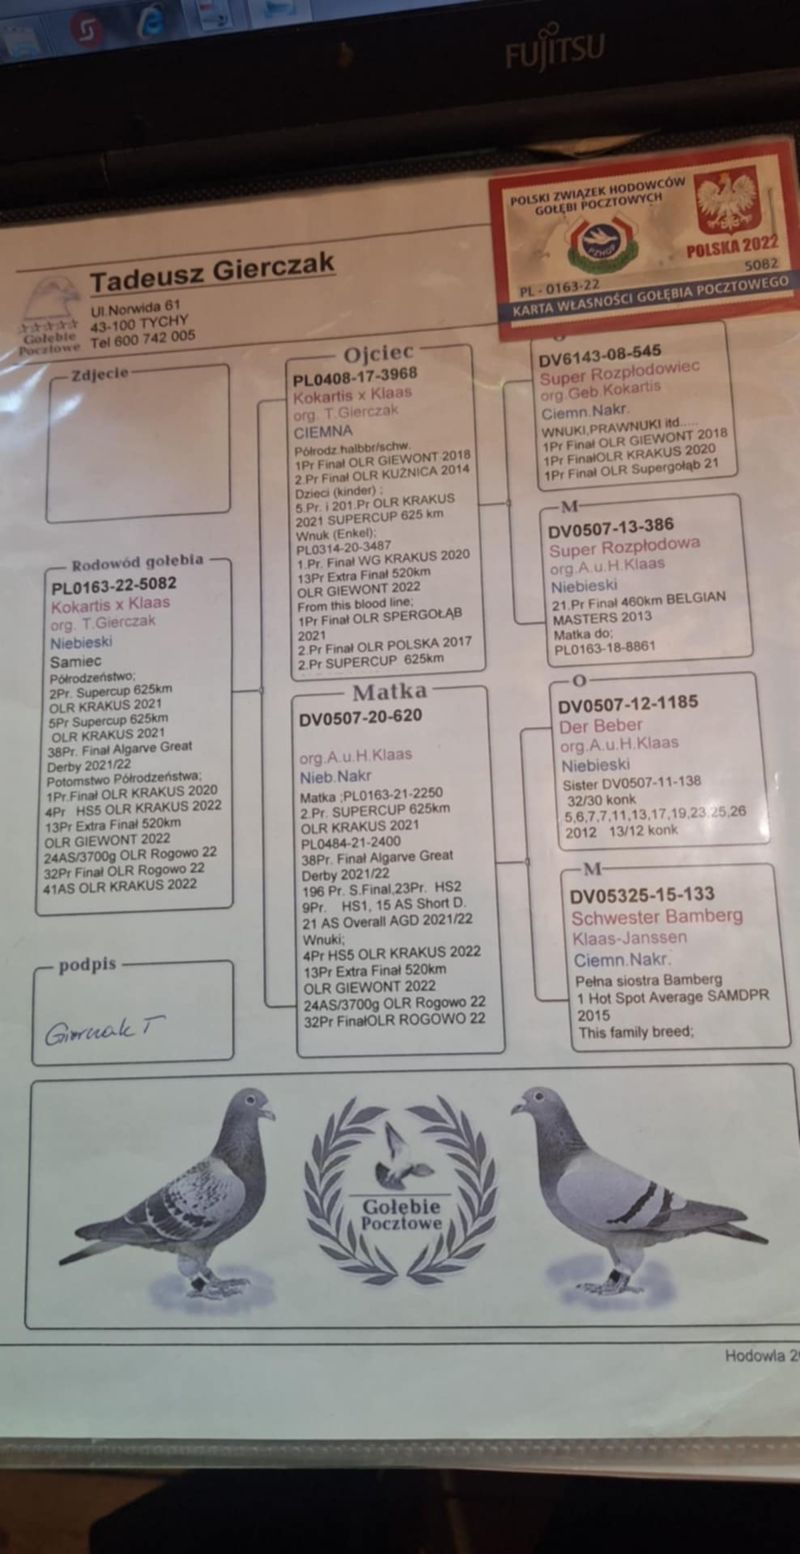 FUJITSU
POLSKI ZWIĄZEK HODOWCÓW
GOŁĘBI POCZTOWYCH
POLSKA 2022
PL - 0163-22
5082
KARTA WŁASNOŚCI GOŁĘBIA POCZTOWEGO
Tadeusz Gierczak
Ul.Norwida 61
43-100 TYCHY
Tel 600 742 005
Gołębie
Pocztowe
Zdjęcie
Rodowód gołębia
PL0163-22-5082
Kokartis x Klaas
org. T.Gierczak
Niebieski
Samiec
Półrodzeństwo;
2Pr. Supercup 625km
OLR KRAKUS 2021
5Pr Supercup 625km
OLR KRAKUS 2021
38Pr. Finał Algarve Great
Derby 2021/22
Potomstwo Półrodzeństwa;
1Pr.Finał OLR KRAKUS 2020
4Pr HS5 OLR KRAKUS 2022
13Pr Extra Finał 520km
OLR GIEWONT 2022
24AS/3700g OLR Rogowo 22
32Pr Finał OLR Rogowo 22
41AS OLR KRAKUS 2022
podpis
Gierczak T
Ojciec
PL0408-17-3968
Kokartis x Klaas
org. T.Gierczak
CIEMNA
Półrodz.halbbr/schw.
1Pr Finał OLR GIEWONT 2018
2.Pr Finał OLR KUŹNICA 2014
Dzieci (kinder) ;
5.Pr. i 201.Pr OLR KRAKUS
2021 SUPERCUP 625 km
Wnuk (Enkel);
PL0314-20-3487
1.Pr. Finał WG KRAKUS 2020
13Pr Extra Finał 520km
OLR GIEWONT 2022
From this blood line;
1Pr Finał OLR SPERGOŁĄB
2021
2.Pr Finał OLR POLSKA 2017
2.Pr SUPERCUP 625km
Matka
DV0507-20-620
org.A.u.H.Klaas
Nieb.Nakr
Matka ;PL0163-21-2250
2.Pr. SUPERCUP 625km
OLR KRAKUS 2021
PL0484-21-2400
38Pr. Finał Algarve Great
Derby 2021/22
196 Pr. S.Finał,23Pr. HS2
9Pr. HS1, 15 AS Short D.
21 AS Overall AGD 2021/22
Wnuki;
4Pr HS5 OLR KRAKUS 2022
13Pr Extra Finał 520km
OLR GIEWONT 2022
24AS/3700g OLR Rogowo 22
32Pr FinałOLR ROGOWO 22
DV6143-08-545
Super Rozpłodowiec
org.Geb Kokartis
Ciemn.Nakr.
WNUKI,PRAWNUKI itd.....
1Pr Finał OLR GIEWONT 2018
1Pr FinałOLR KRAKUS 2020
1Pr Finał OLR Supergołąb 21
M
DV0507-13-386
Super Rozpłodowa
org.A.u.H.Klaas
Niebieski
21.Pr Finał 460km BELGIAN
MASTERS 2013
Matka do;
PL0163-18-8861
O
DV0507-12-1185
Der Beber
org.A.u.H.Klaas
Niebieski
Sister DV0507-11-138
32/30 konk
5,6,7,7,11,13,17,19,23,25,26
2012 13/12 konk
M
DV05325-15-133
Schwester Bamberg
Klaas-Janssen
Ciemn.Nakr.
Pełna siostra Bamberg
1 Hot Spot Average SAMDPR
2015
This family breed;
Gołębie
Pocztowe
Hodowla